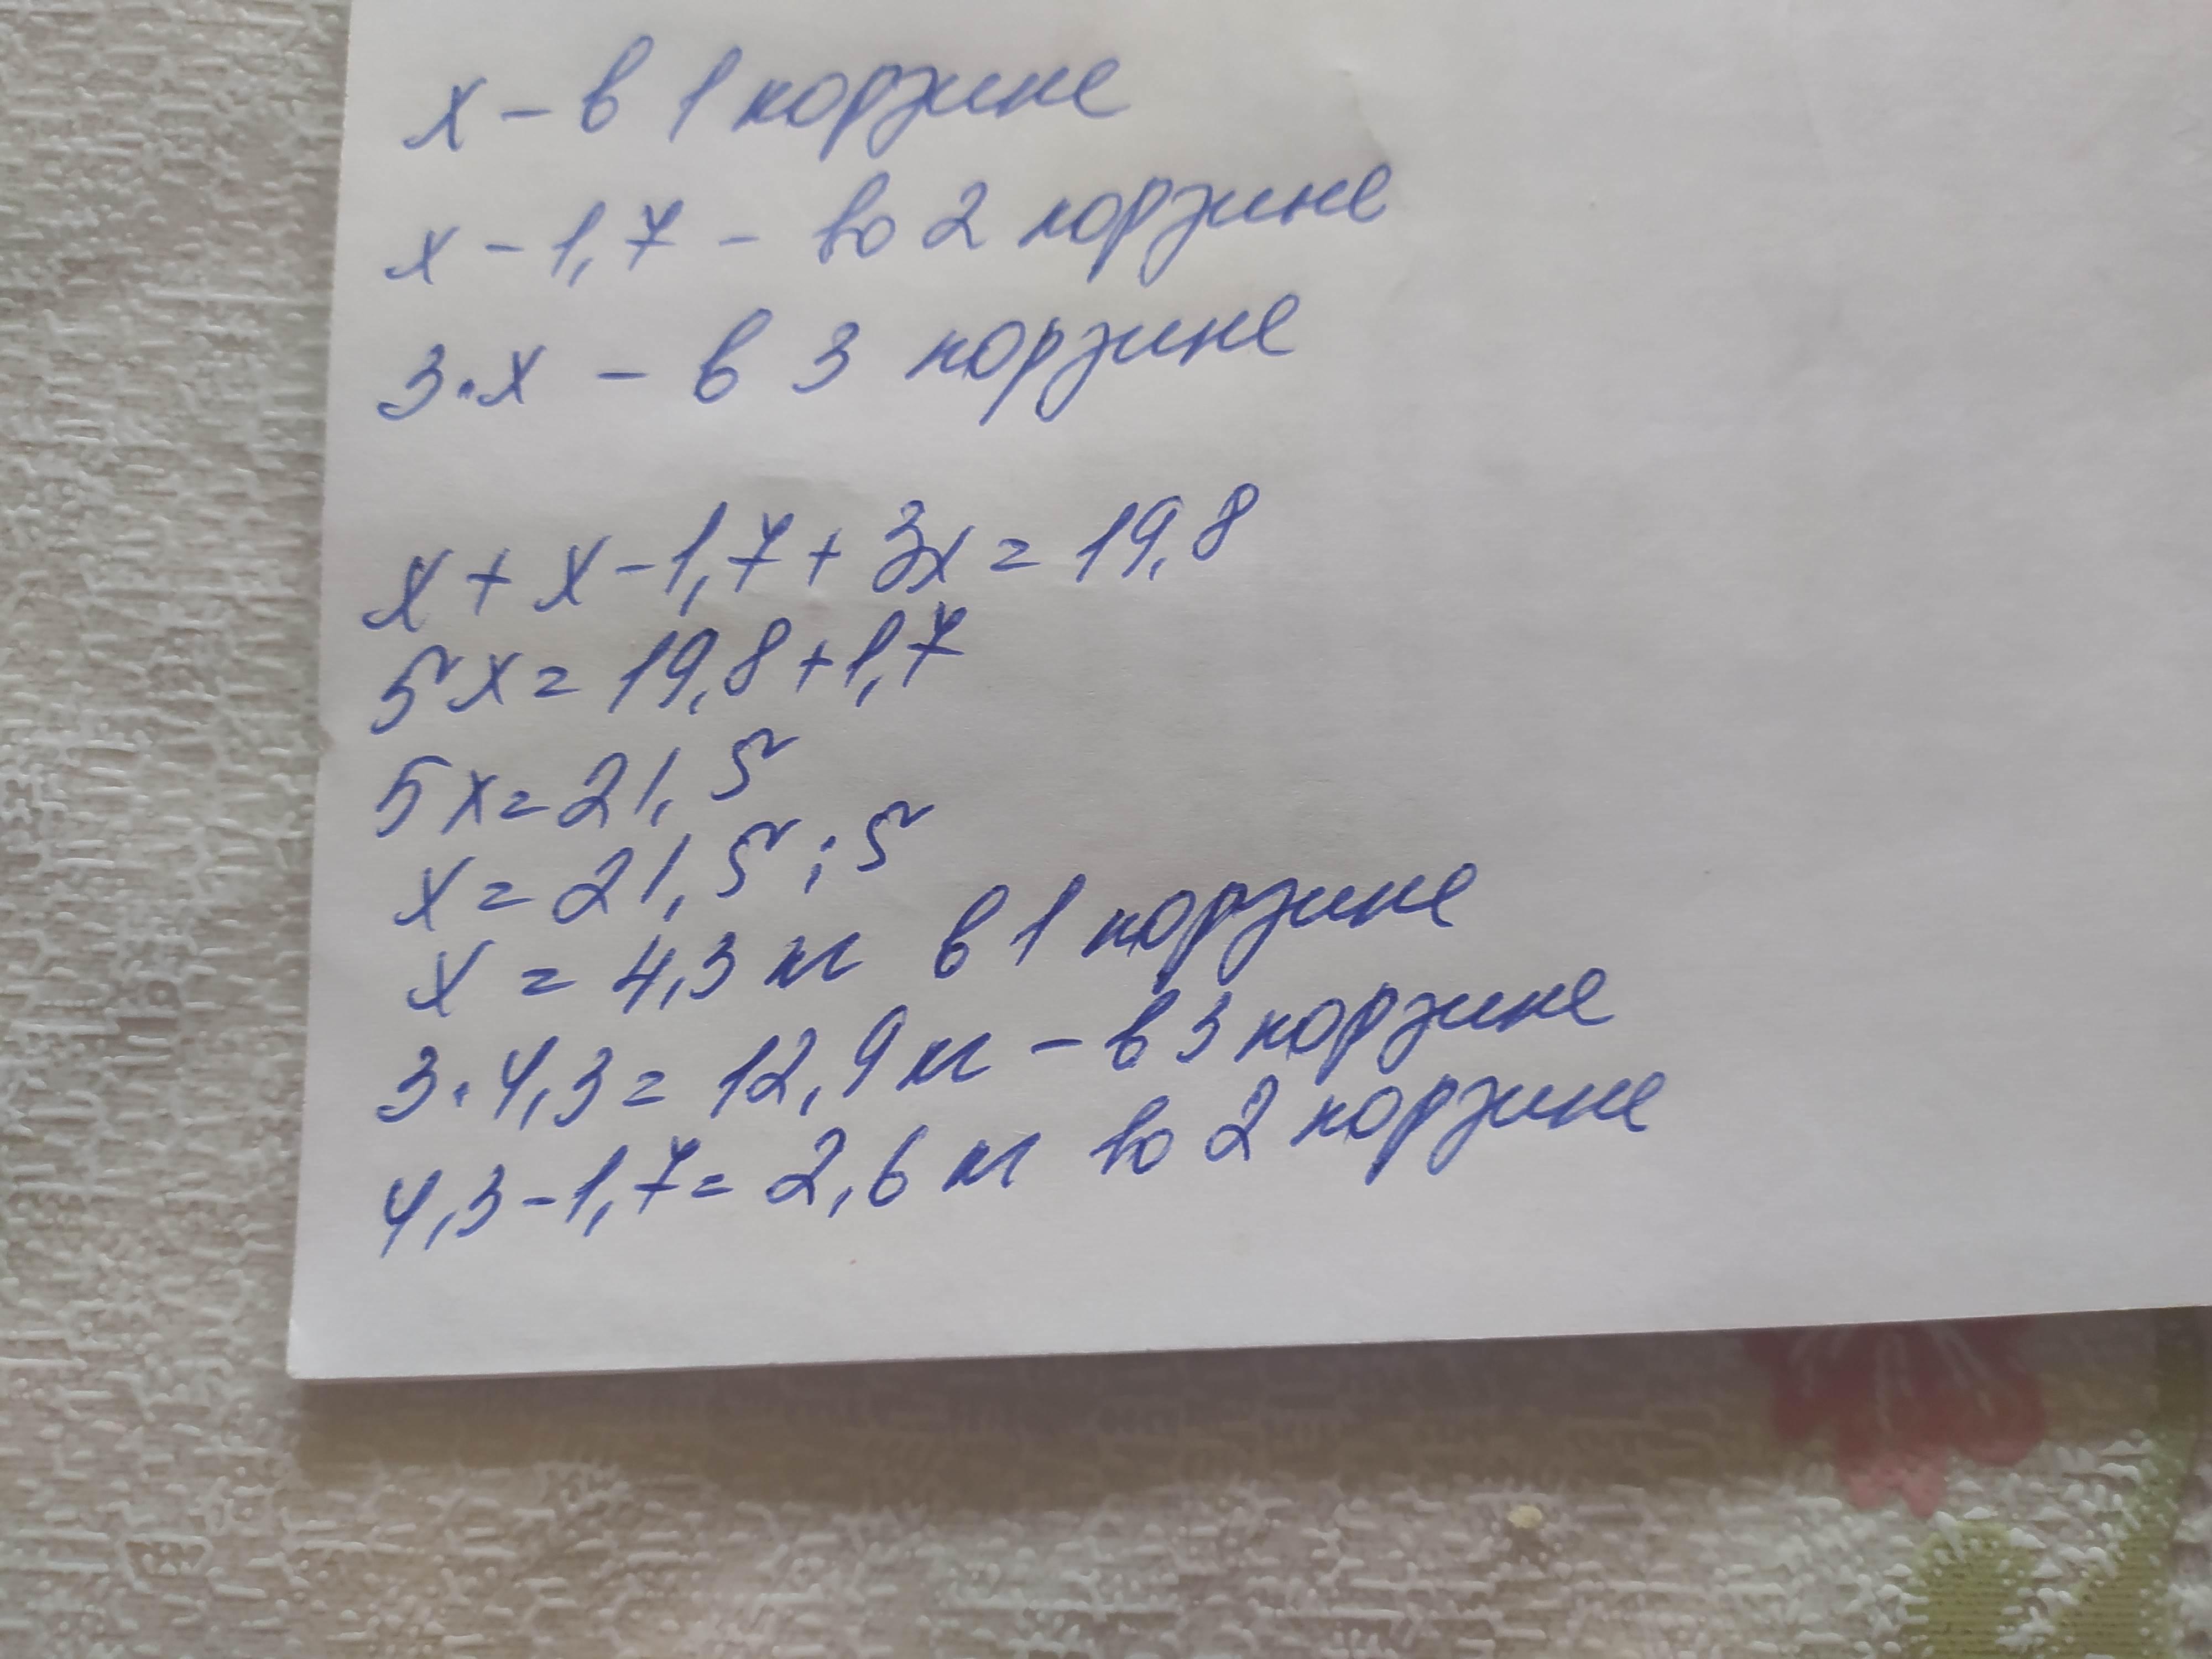 х – в 1 корзине
х – 1,7 – во 2 корзине
3·х – в 3 корзине
х + х – 1,7 + 3х = 19,8
5х = 19,8 + 1,7
5х = 21,5
х = 21,5 : 5
х = 4,3 кг в 1 корзине
3·4,3 = 12,9 кг – в 3 корзине
4,3 – 1,7 = 2,6 кг во 2 корзине